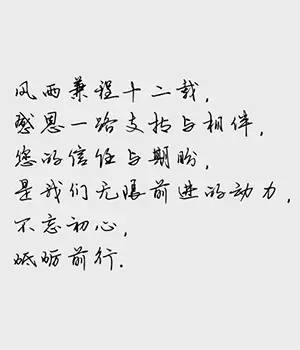 风雨兼程十二载,
感恩一路支持与相伴,
您的信任与期盼,
是我们无限前进的动力,
不忘初心,
砥砺前行.